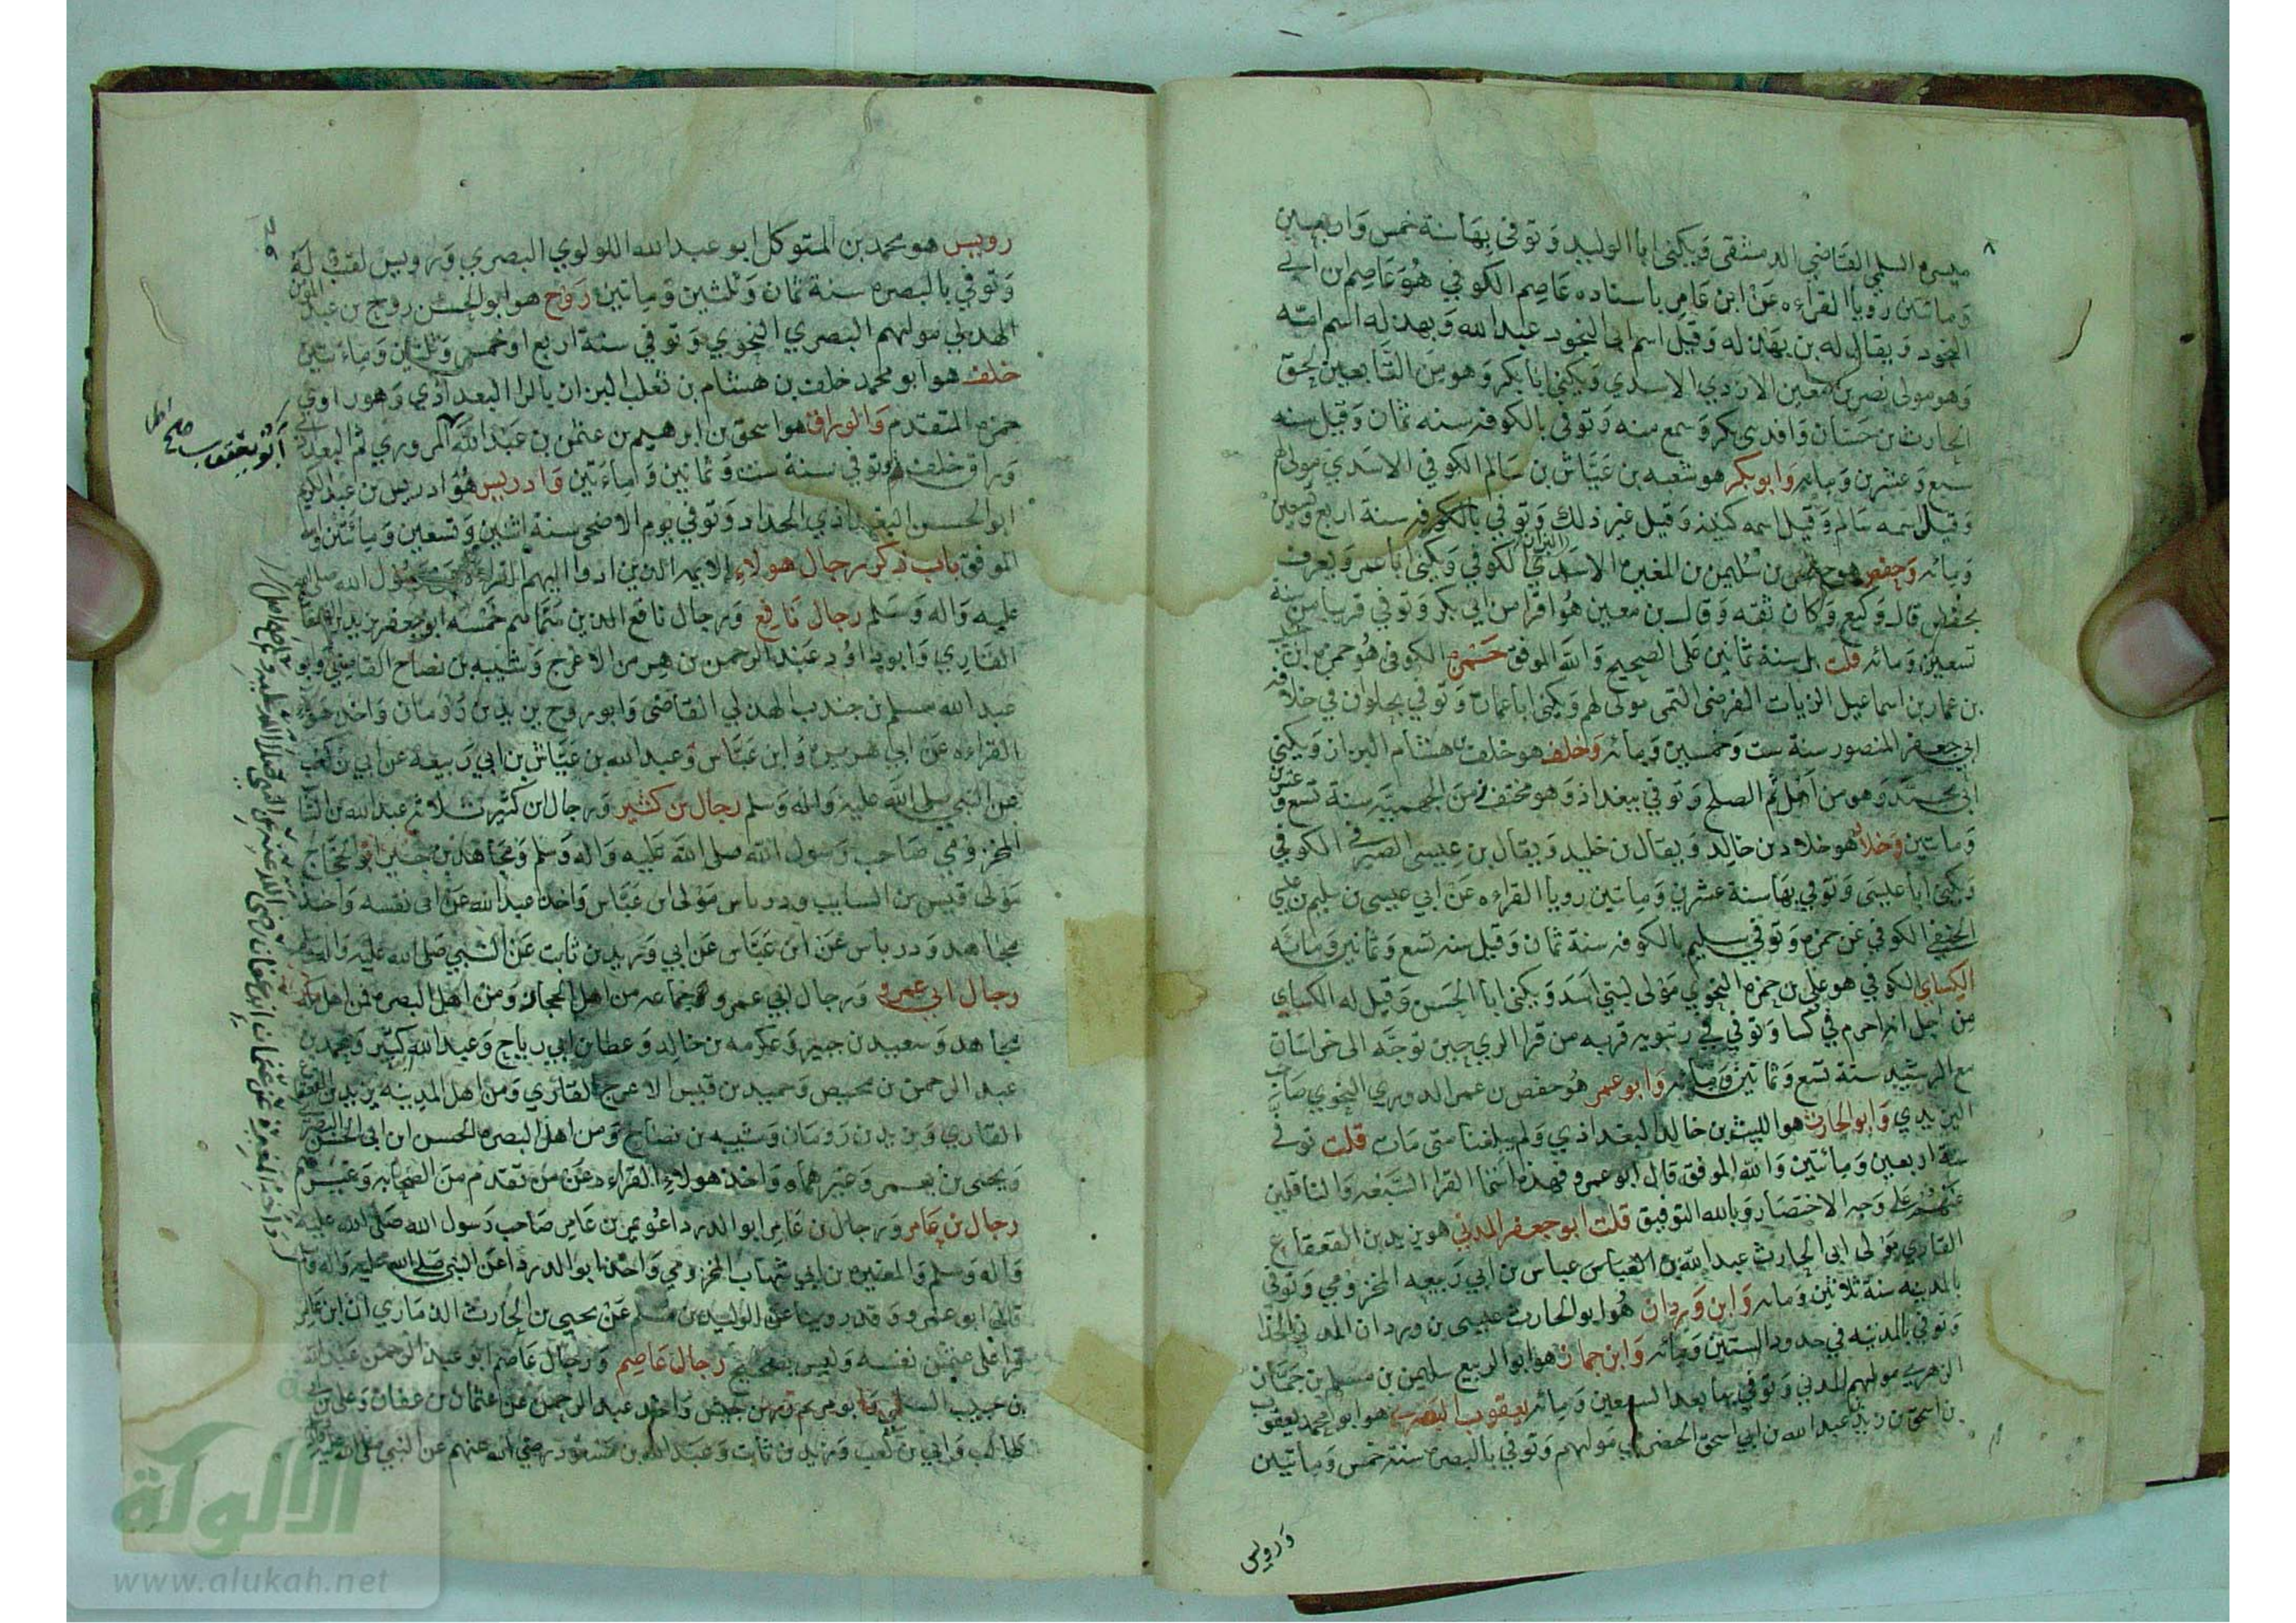 ٨
ميسره السلمي القاضي الدمشقي ويكنى ابا الوليد وتوفي بها سنة خمس واربعين
وماتين رويا القراءه عن ابن عامر باسناده عاصم الكوفي هو عاصم ابن ابي
النجود ويقال له بن بهدله وقيل اسم ابي النجود عبد الله وبهدله اسم امه
وهو مولى نصر بن معين الازدي الاسدي ويكنى ابا بكر وهو من التابعين لحق
الحارث بن حسان وافد بني بكر وسمع منه وتوفي بالكوفه سنه ثمان وقيل سنه
سبع وعشرين ومائه وابو بكر هو شعبه بن عياش بن سالم الكوفي الاسدي مولى لهم
وقيل اسمه سالم وقيل اسمه كنيته وقيل غير ذلك وتوفي بالكوفه سنة اربع وتسعين
ومائه وحفص هو حفص بن سليمن بن المغيره الاسدي البزاز الكوفي ويكنى ابا عمر ويعرف
بحفص قال وكيع وكان ثقه وقال بن معين هو اقرا من ابي بكر وتوفي قريبا من سنة
تسعين ومائه قلت بل سنة ثمانين على الصحيح والله الموفق حمزه الكوفي هو حمزه ابن حبيب
بن عمار بن اسماعيل الزيات الفرضي التيمي مولى لهم ويكنى ابا عمارة وتوفي بحلوان في خلافه
ابي جعفر المنصور سنة ست وخمسين ومائه وخلف هو خلف بن هشام البزار ويكنى
ابي محمد وهو من اهل فم الصلح وتوفي ببغداذ وهو مختفي من الجهميه سنة تسع وعشرين
وماتين وخلاد هو خلاد بن خالد ويقال بن خليد ويقال بن عيسى الصيرفي الكوفي
ويكنى ابا عيسى وتوفي بها سنة عشرين وماتين رويا القراءه عن ابي عيسى سليم بن عيسى
الحنفي الكوفي عن حمزه وتوفي سليم بالكوفه سنة ثمان وقيل سنه تسع وثمانين ومائه
الكسائي الكوفي هو علي بن حمزه النحوي مولى لبني اسد ويكنى ابا الحسن وقيل له الكسائي
من اجل انه احرم في كسا وتوفي في رنبويه قريه من قرا الري حين توجه الى خراسان
مع الرشيد سنة تسع وثمانين ومائه وابو عمر هو حفص بن عمر الدوري النحوي صاحب
اليزيدي وابو الحارث هو الليث بن خالد البغداذي ولم يبلغنا متى مات قلت توفي
سنة اربعين ومائتين والله الموفق قال ابو عمرو فهذه اسما القرا السبعه والناقلين
عنهم على وجه الاختصار وبالله التوفيق قلت ابو جعفر المدني هو يزيد بن القعقاع
القاري مولى ابي الحارث عبد الله بن العياس عياس بن ابي ربيعه المخزومي وتوفي
بالمدينه سنة ثلاثين ومائه وابن وردان هو ابو الحارث عيسى بن وردان المدني الحذا
وتوفي بالمدينه في حدود الستين ومائه وابن جماز هو ابو الربيع سليمن بن مسلم بن جماز
الزهري مولهم المدني وتوفي بها بعد السبعين ومائه يعقوب البصري هو ابو محمد يعقوب
بن اسحق بن زيد بن عبد الله بن ابي اسحق الحضرمي مولهم وتوفي بالبصره سنة خمس وماتين
ورويس
رويس هو محمد بن المتوكل ابو عبد الله اللولوي البصري ورويس لقب له
وتوفي بالبصره سنة ثمان وثلثين وماتين روح هو ابو الحسن روح بن عبد المومن
الهذلي مولهم البصري النحوي وتوفي سنة اربع او خمس وثلثين وماءتين
خلف هو ابو محمد خلف بن هشام بن ثعلب البزار بالرا البغداذي وهو راوي
حمزه المتقدم والوراق هو اسحق بن ابرهيم بن عثمن بن عبد الله المروزي ثم البغدادي
ابو يعقوب صح اصل
وراق خلف وتوفي سنة ست وثمانين وماءتين وادريس هو ادريس بن عبد الكريم
ابو الحسن البغداذي الحداد وتوفي يوم الاضحى سنة اثنين وتسعين ومائتين والله
الموفق باب ذكر رجال هولاء الايمه الذين ادوا اليهم القراءه عن رسول الله صلى الله
عليه واله وسلم رجال نافع ورجال نافع الذين سماهم خمسه ابو جعفر يزيد بن القعقاع
القاري وابو داود عبد الرحمن بن هرمز الاعرج وشيبه بن نصاح القاضي وابو
عبد الله مسلم بن جندب الهذلي القاضي وابو روح يزيد بن رومان واخذ هولاء
القراءه عن ابي هريره وابن عباس وعبد الله بن عياش بن ابي ربيعه عن ابي بن كعب
عن النبي صلى الله عليه واله وسلم رجال بن كثير ورجال ابن كثير ثلاثه عبد الله بن السائب
المخزومي صاحب رسول الله صلى الله عليه واله وسلم ومجاهد بن جبير ابو الحجاج
مولى قيس بن السايب ودرباس مولى ابن عباس واخذ عبد الله عن ابي نفسه واخذ
مجاهد ودرباس عن ابن عباس عن ابي وزيد بن ثابت عن النبي صلى الله عليه واله
رجال ابي عمرو ورجال ابي عمرو جماعه من اهل الحجاز ومن اهل البصره فمن اهل مكه
مجاهد وسعيد بن جبير وعكرمه بن خالد وعطا بن ابي رباح وعبد الله بن كثير ومحمد بن
عبد الرحمن بن محيص وحميد بن قيس الاعرج القاري ومن اهل المدينه يزيد بن القعقاع
القاري ويزيد بن رومان وشيبه بن نصاح ومن اهل البصره الحسن ابن ابي الحسن البصري
ويحيى بن يعمر وغيرهما واخذ هولاء القراءه عن من تقدم من الصحابه وغيرهم
رجال بن عامر ورجال بن عامر ابو الدرداء عويمر بن عامر صاحب رسول الله صلى الله عليه
واله وسلم والمغيره بن ابي شهاب المخزومي واخذ ابو الدرداء عن النبي صلى الله عليه واله
واخذ المغيره عن عثمان ابن عفان رضي الله عنه عن النبي صلى الله عليه
قال ابو عمرو وقد روينا عن الوليد بن مسلم عن يحيى بن الحارث الذماري ان ابن عامر
قرا على عثمن نفسه وليس بصحيح رجال عاصم ورجال عاصم ابو عبد الرحمن عبد الله
بن حبيب السلمي وابو مريم زر بن حبيش واخذ عبد الرحمن عن عثمان بن عفان وعلي بن ابي
طالب وابي بن كعب وزيد بن ثابت وعبد الله بن مسعود رضي الله عنهم عن النبي صلى الله عليه
الالوكة
www.alukah.net